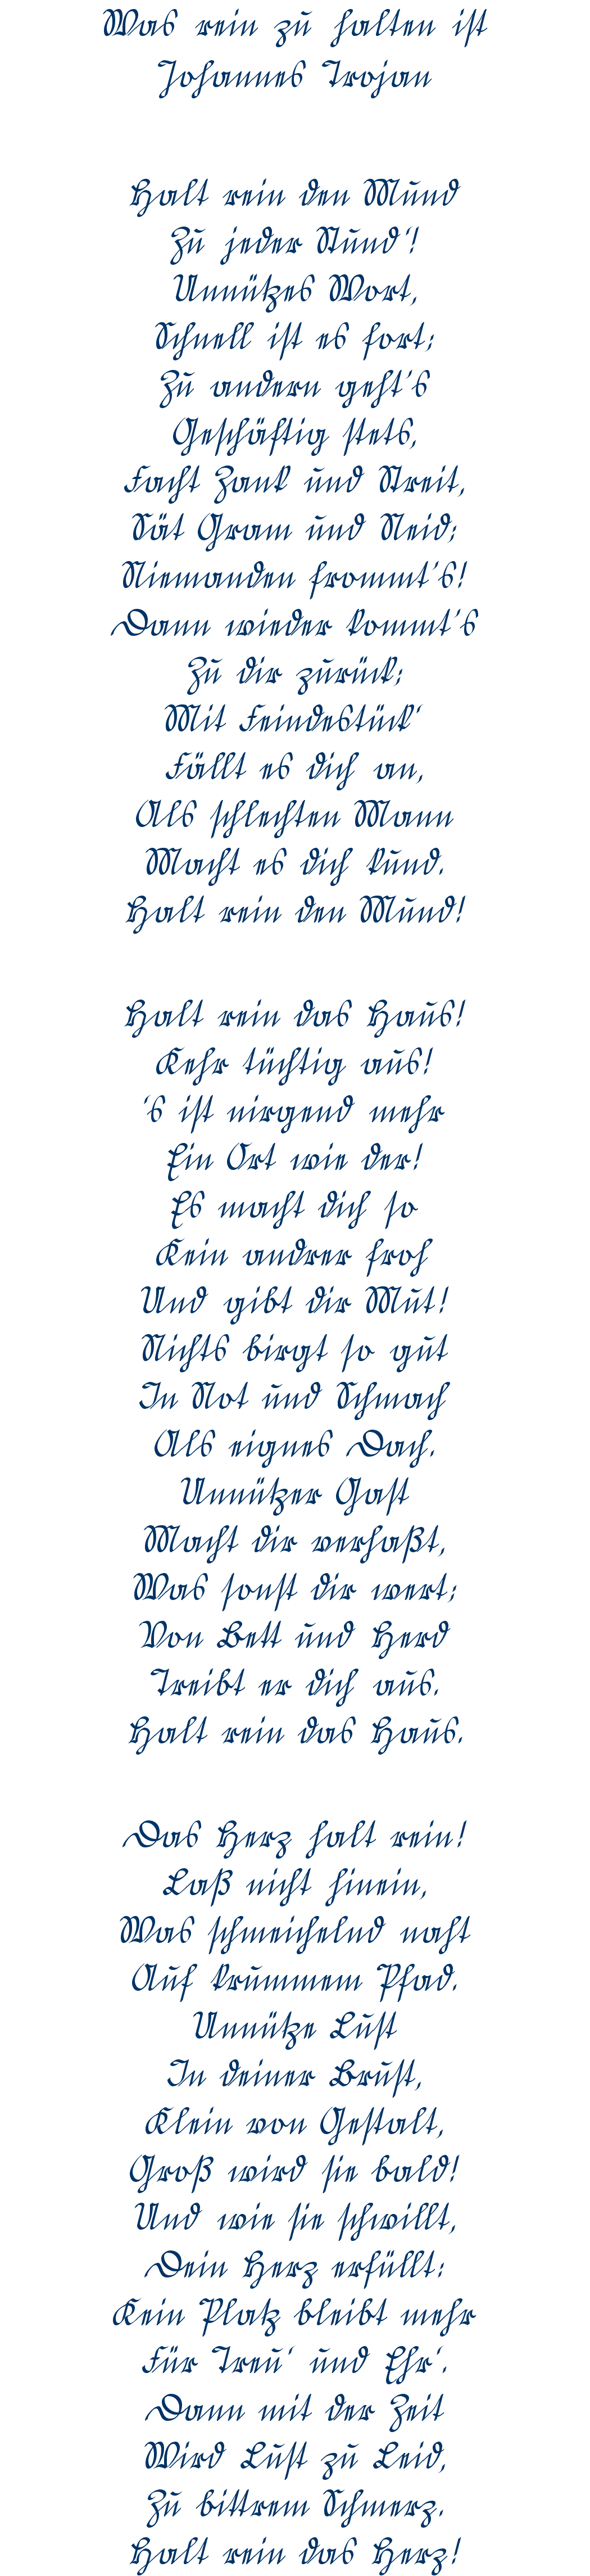 Was rein zu halten ist
Johannes Trojan
Halt rein den Mund
Zu jeder Stund'!
Unnützes Wort,
Schnell ist es fort;
Zu andern geht's
Geschäftig stets,
Facht Zank und Streit,
Sät Gram und Neid;
Niemanden frommt's!
Dann wieder kommt's
Zu dir zurück;
Mit Feindestück'
Fällt es dich an,
Als schlechten Mann
Macht es dich kund.
Halt rein den Mund!
Halt rein das Haus!
Kehr tüchtig aus!
's ist nirgend mehr
Ein Ort wie der!
Es macht dich so
Kein andrer froh
Und gibt dir Mut!
Nichts birgt so gut
In Not und Schmach
Als eignes Dach.
Unnützer Gast
Macht dir verhaßt,
Was sonst dir wert;
Von Bett und Herd
Treibt er dich aus.
Halt rein das Haus.
Das Herz halt rein!
Laß nicht hinein,
Was schmeichelnd naht
Auf krummem Pfad.
Unnütze Lust
In deiner Brust,
Klein von Gestalt,
Groß wird sie bald!
Und wie sie schwillt,
Dein Herz erfüllt:
Kein Platz bleibt mehr
Für Treu' und Ehr'.
Dann mit der Zeit
Wird Lust zu Leid,
Zu bittrem Schmerz.
Halt rein das Herz!